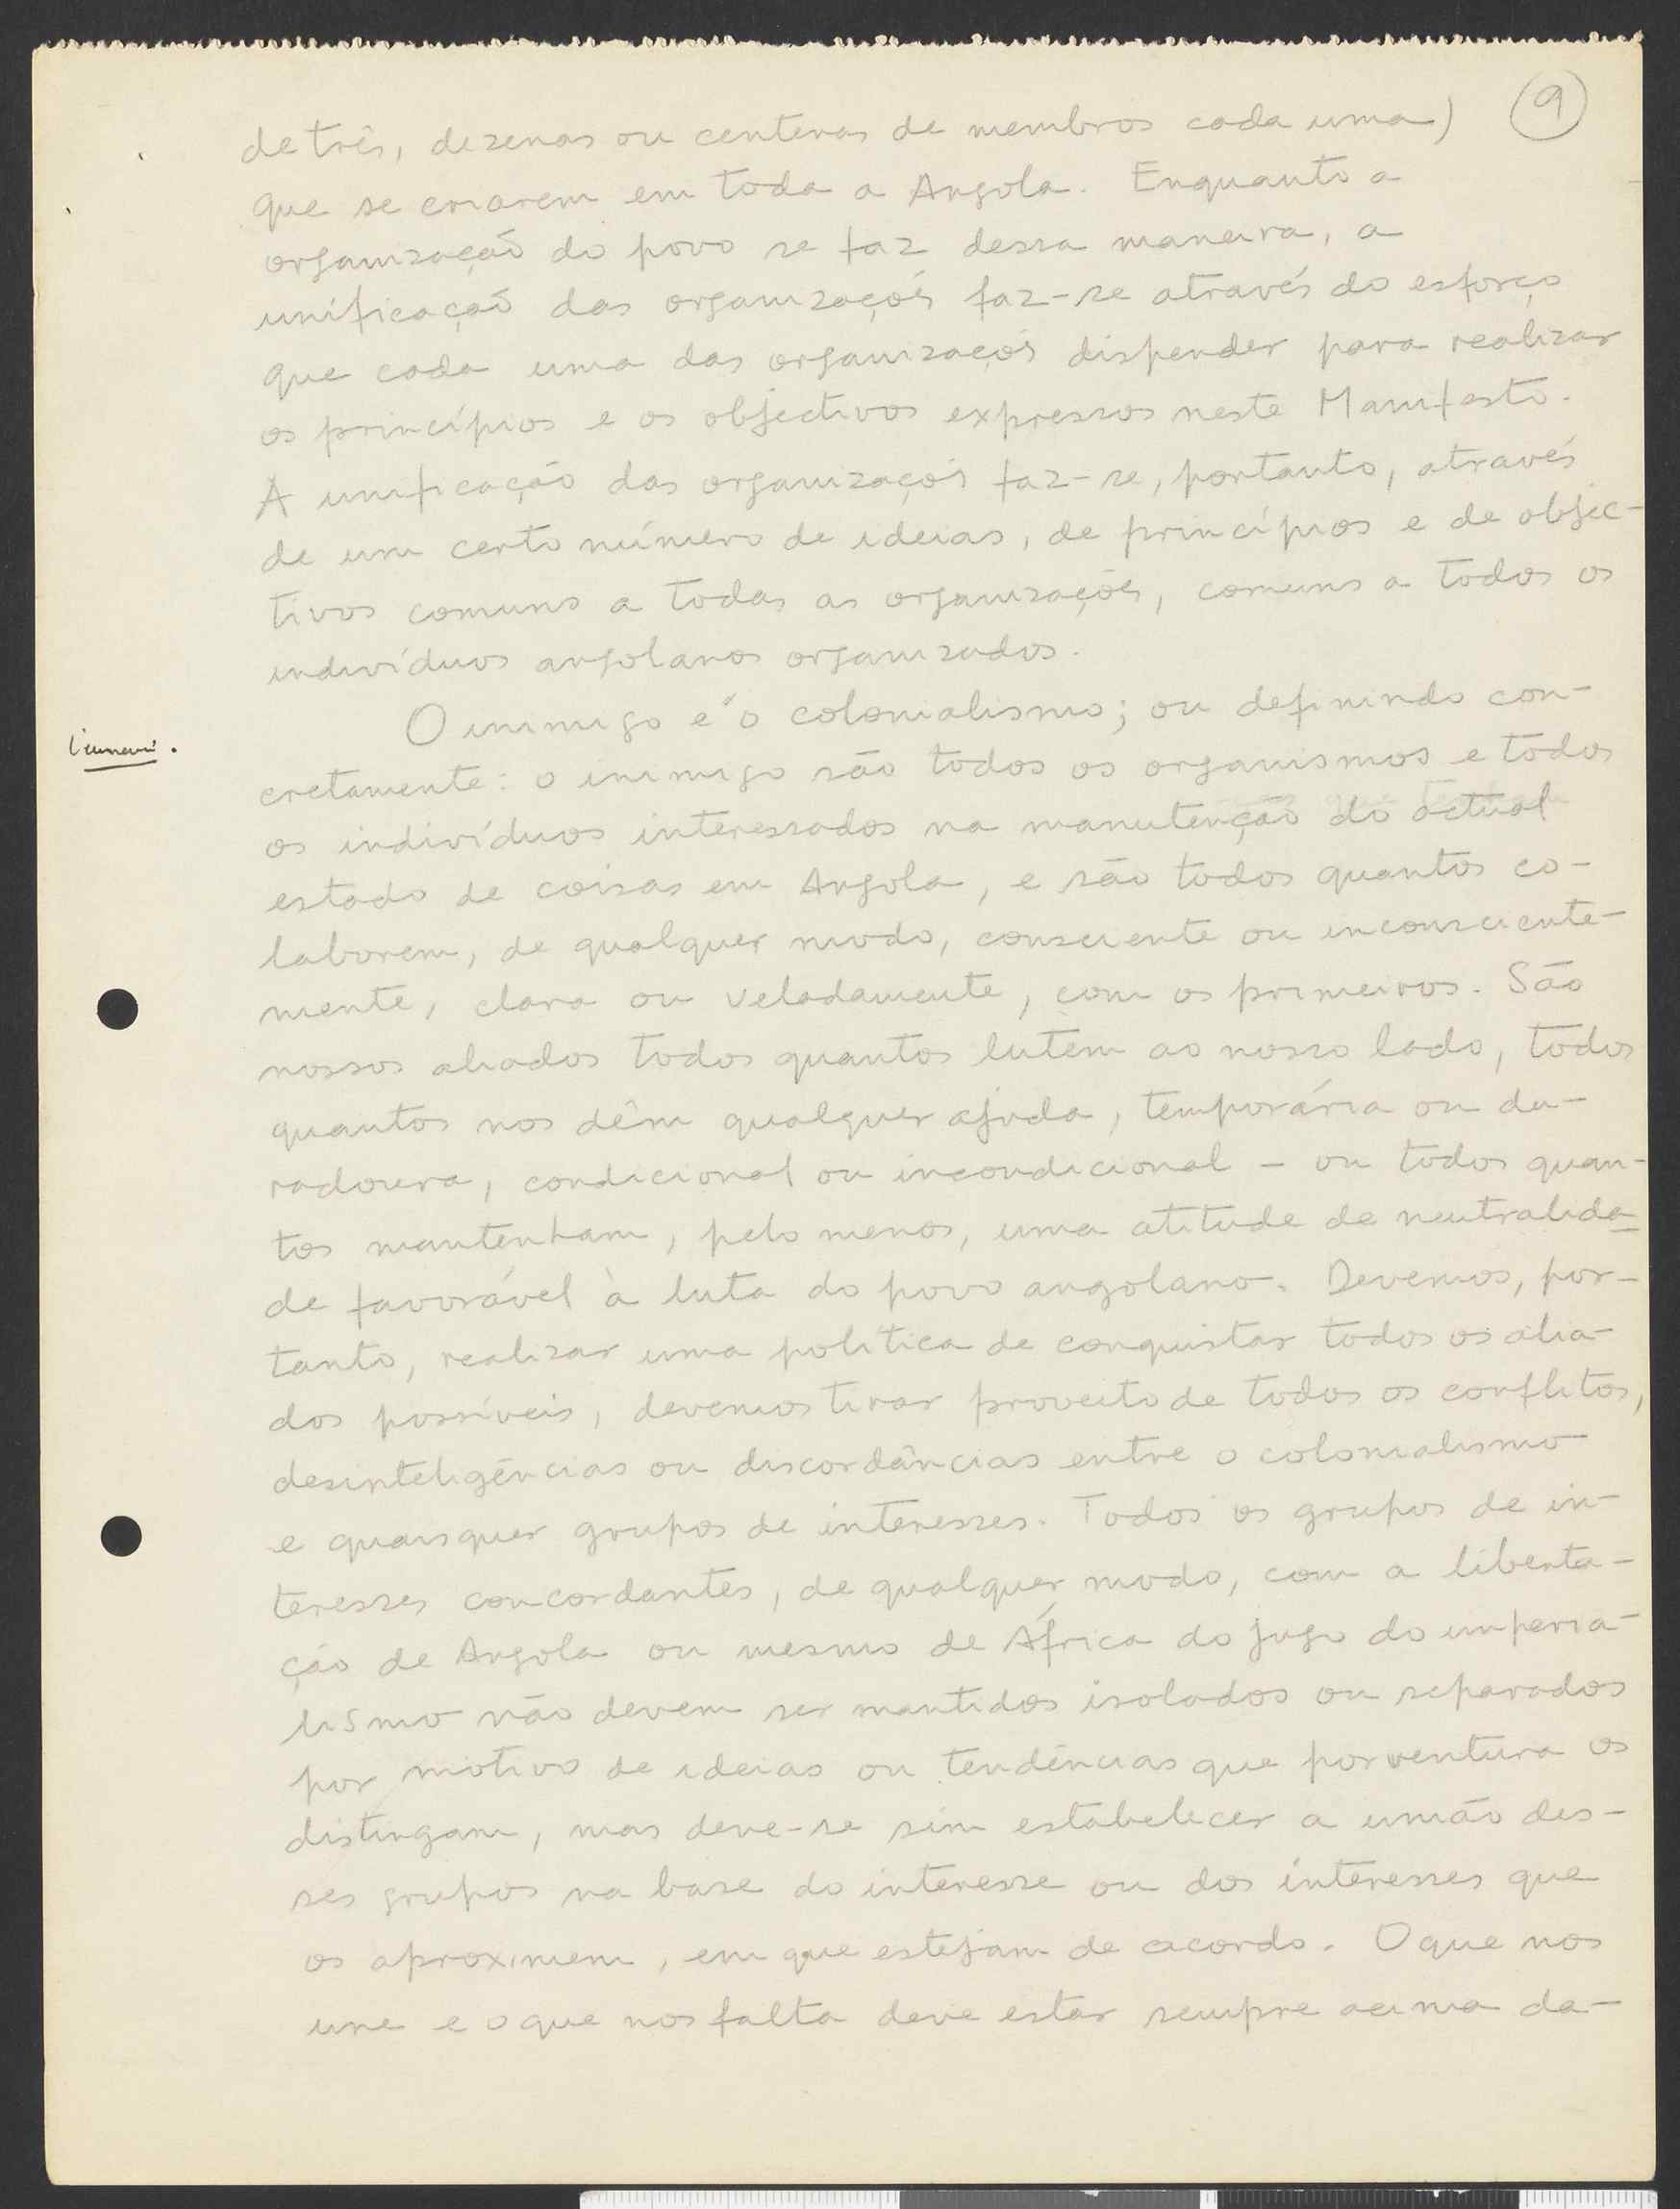 9
de três, dezenas ou centenas de membros cada uma)
que se criarem em toda a Angola. Enquanto a
organização do povo se faz dessa maneira, a
unificação das organizações faz-se através do esforço
que cada uma das organizações dispender para realizar
os princípios e os objectivos expressos neste Manifesto.
A unificação das organizações faz-se, portanto, através
de um certo número de ideias, de princípios e de objec-
tivos comuns a todas as organizações, comuns a todos os
indivíduos angolanos organizados.
O inimigo é o colonialismo; ou definindo con-
cretamente: o inimigo são todos os organismos e todos
os indivíduos interessados na manutenção do actual
estado de coisas em Angola, e são todos quantos co-
laborem, de qualquer modo, consciente ou inconsciente-
mente, clara ou veladamente, com os primeiros. São
nossos aliados todos quantos lutem ao nosso lado, todos
quantos nos dêm qualquer ajuda, temporária ou du-
radoura, condicional ou incondicional - ou todos quan-
tos mantenham, pelo menos, uma atitude de neutralida-
de favorável à luta do povo angolano. Devemos, por-
tanto, realizar uma política de conquistar todos os alia-
dos possíveis, devemos tirar proveito de todos os conflitos,
desinteligências ou discordâncias entre o colonialismo
e quaisquer grupos de interesses. Todos os grupos de in-
teresses concordantes, de qualquer modo, com a liberta-
ção de Angola ou mesmo de África do jugo do imperia-
lismo não devem ser mantidos isolados ou separados
por motivo de ideias ou tendências que porventura os
distingam, mas deve-se sim estabelecer a união des-
ses grupos na base do interesse ou dos interesses que
os aproximem, em que estejam de acordo. O que nos
une e o que nos falta deve estar sempre acima da-